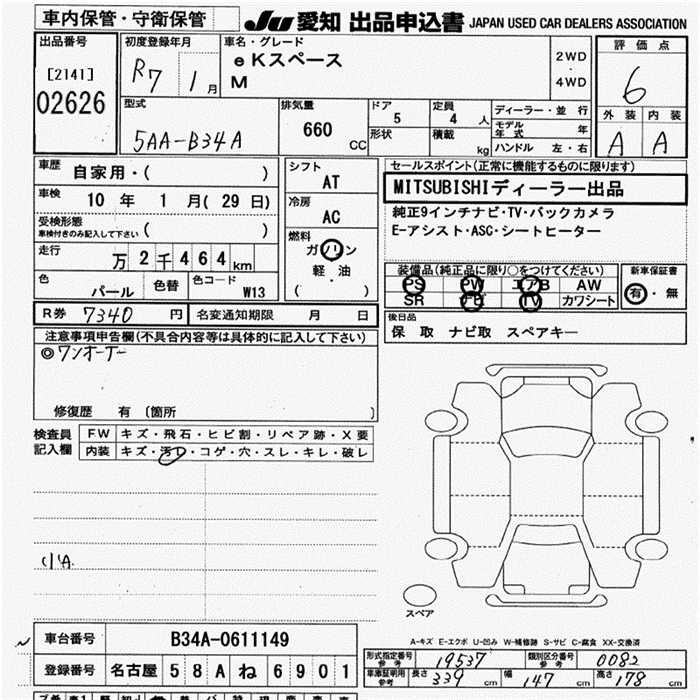 車内保管・守衛保管
JU 愛知 出品申込書 JAPAN USED CAR DEALERS ASSOCIATION
出品番号
[2141]
02626
初度登録年月
R7 1月
車名・グレード
eKスペース
M
2WD
・
4WD
評価点
6
外装 内装
A A
型式
5AA-B34A
排気量
660 CC
ドア
5
形状
定員
4 人
積載
kg
ディーラー・並行
モデル年式 年
ハンドル 左・右
車歴
自家用・( )
車検
10年 1月(29日)
受検形態
車検付きのみ記入して下さい ( )
走行
万2千464km
色
パール
色替
色コード
W13
シフト
AT
冷房
AC
燃料
ガソリン
軽・油
( )
セールスポイント(正常に機能するものに限ります)
MITSUBISHIディーラー出品
純正9インチナビ・TV・バックカメラ
E-アシスト・ASC・シートヒーター
装備品(純正品に限り○をつけてください)
PS PW エアB AW
SR ナビ TV カワシート
新車保証書
有・無
R券 7340円
名変通知期限 月 日
後日品
保 取 ナビ取 スペアキー
注意事項申告欄(不具合内容等は具体的に記入して下さい)
◎ワンオーナー
修復歴 有 〔箇所 〕
検査員記入欄
FW キズ・飛石・ヒビ割・リペア跡・X要
内装 キズ・汚レ・コゲ・穴・スレ・キレ・破レ
小A
スペア
A-キズ E-エクボ U-凹み W-補修跡 S-サビ C-腐食 XX-交換済
車台番号 B34A-0611149
登録番号 名古屋 58Aね6901
形式指定番号 参考 19537
類別区分番号 参考 0082
車庫証明用 参考 長さ 339 cm 幅 147 cm 高さ 178 cm